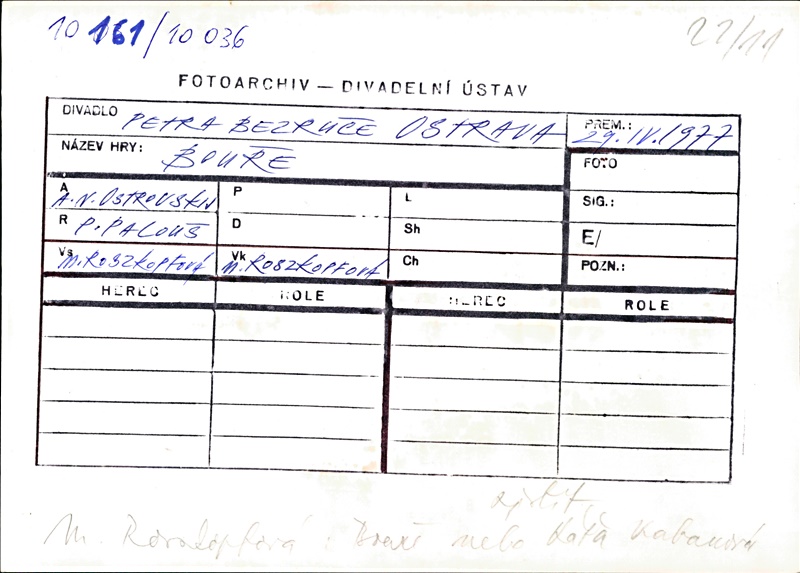 10 161/10 036
22/11
FOTOARCHIV — DIVADELNÍ ÚSTAV
DIVADLO PETRA BEZRUČE OSTRAVA
PREM.: 29.IV.1977
NÁZEV HRY: BOUŘE
FOTO
A A.N.OSTROVSKIJ
P
L
SIG.:
R P.PALOUŠ
D
Sh
E/
Vs M.ROSZKOPFOVÁ
Vk M.ROSZKOPFOVÁ
Ch
POZN.:
HEREC ROLE HEREC ROLE
zjistit,
M. : Bouře nebo Káťa Kabanová